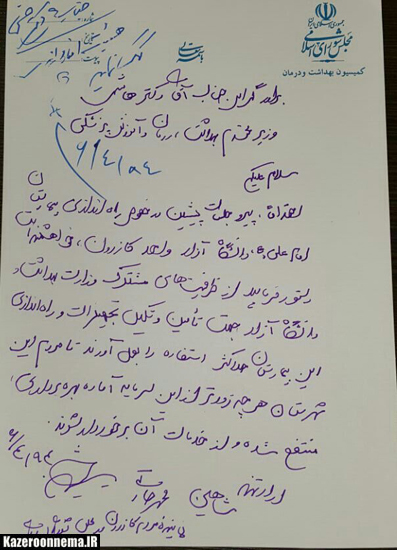 جمهوری اسلامی ایران
مجلس شورای اسلامی
کمیسیون بهداشت و درمان
بسمه تعالی
برادر گرامی جناب آقای دکتر هاشمی
وزیر محترم بهداشت، درمان و آموزش پزشکی
سلام علیکم
احتراماً، پیرو جلسات پیشین در خصوص راه اندازی بیمارستان
امام علی (ع) دانشگاه آزاد واحد کازرون، خواهشمند است
دستور فرمایید از ظرفیت‌های مشترک وزارت بهداشت و
دانشگاه آزاد جهت تأمین و تکمیل تجهیزات و راه اندازی
این بیمارستان حداکثر استفاده را بعمل آورند تا مردم این
شهرستان هر چه زودتر از این سرمایه آماده بهره برداری،
منتفع شده و از خدمات آن برخوردار شوند.
ارادتمند
نماینده مردم کازرون در مجلس شورای اسلامی
Kazeroonnema.IR